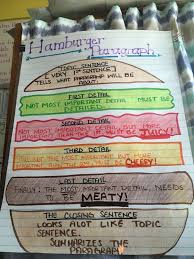 Hamburger
Paragraph
TOPIC SENTENCE
[VERY 1ST SENTENCE]
TELLS WHAT PARAGRAPH WILL BE
ABOUT.
FIRST DETAIL
NOT MOST IMPORTANT DETAIL MUST BE
DETAILED.
SECOND DETAIL
NOT MOST IMPORTANT DETAIL, BUT
JUICY!
THIRD DETAIL
CHEESY!
LAST DETAIL
FINALLY: THE MOST IMPORTANT DETAIL, NEEDS
TO BE MEATY!
THE CLOSING SENTENCE
LOOKS ALOT LIKE TOPIC
SENTENCE.
SUMMARIZES THE
PARAGRAPH